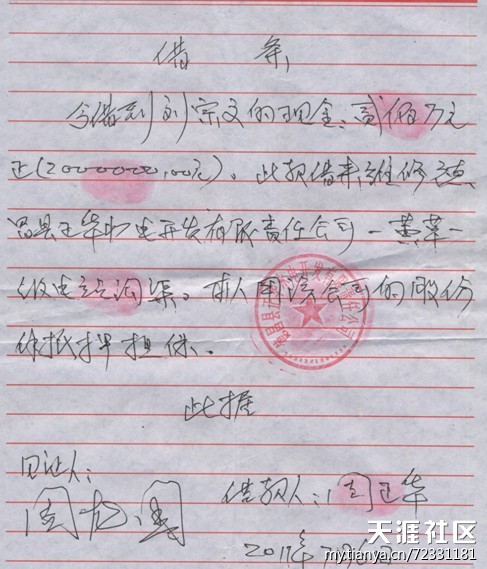 借条
今借到刘宗文的现金:贰佰万元
正(2000000.00元)。此款借来维修
昌县正华水电开发有限责任公司一黄莘一
级电站沟渠。本人用该公司的股份
作抵押担保、
此据
见证人:
借款人:周正华
2011年7月6日
天涯社区
mytianya.cn/72331181